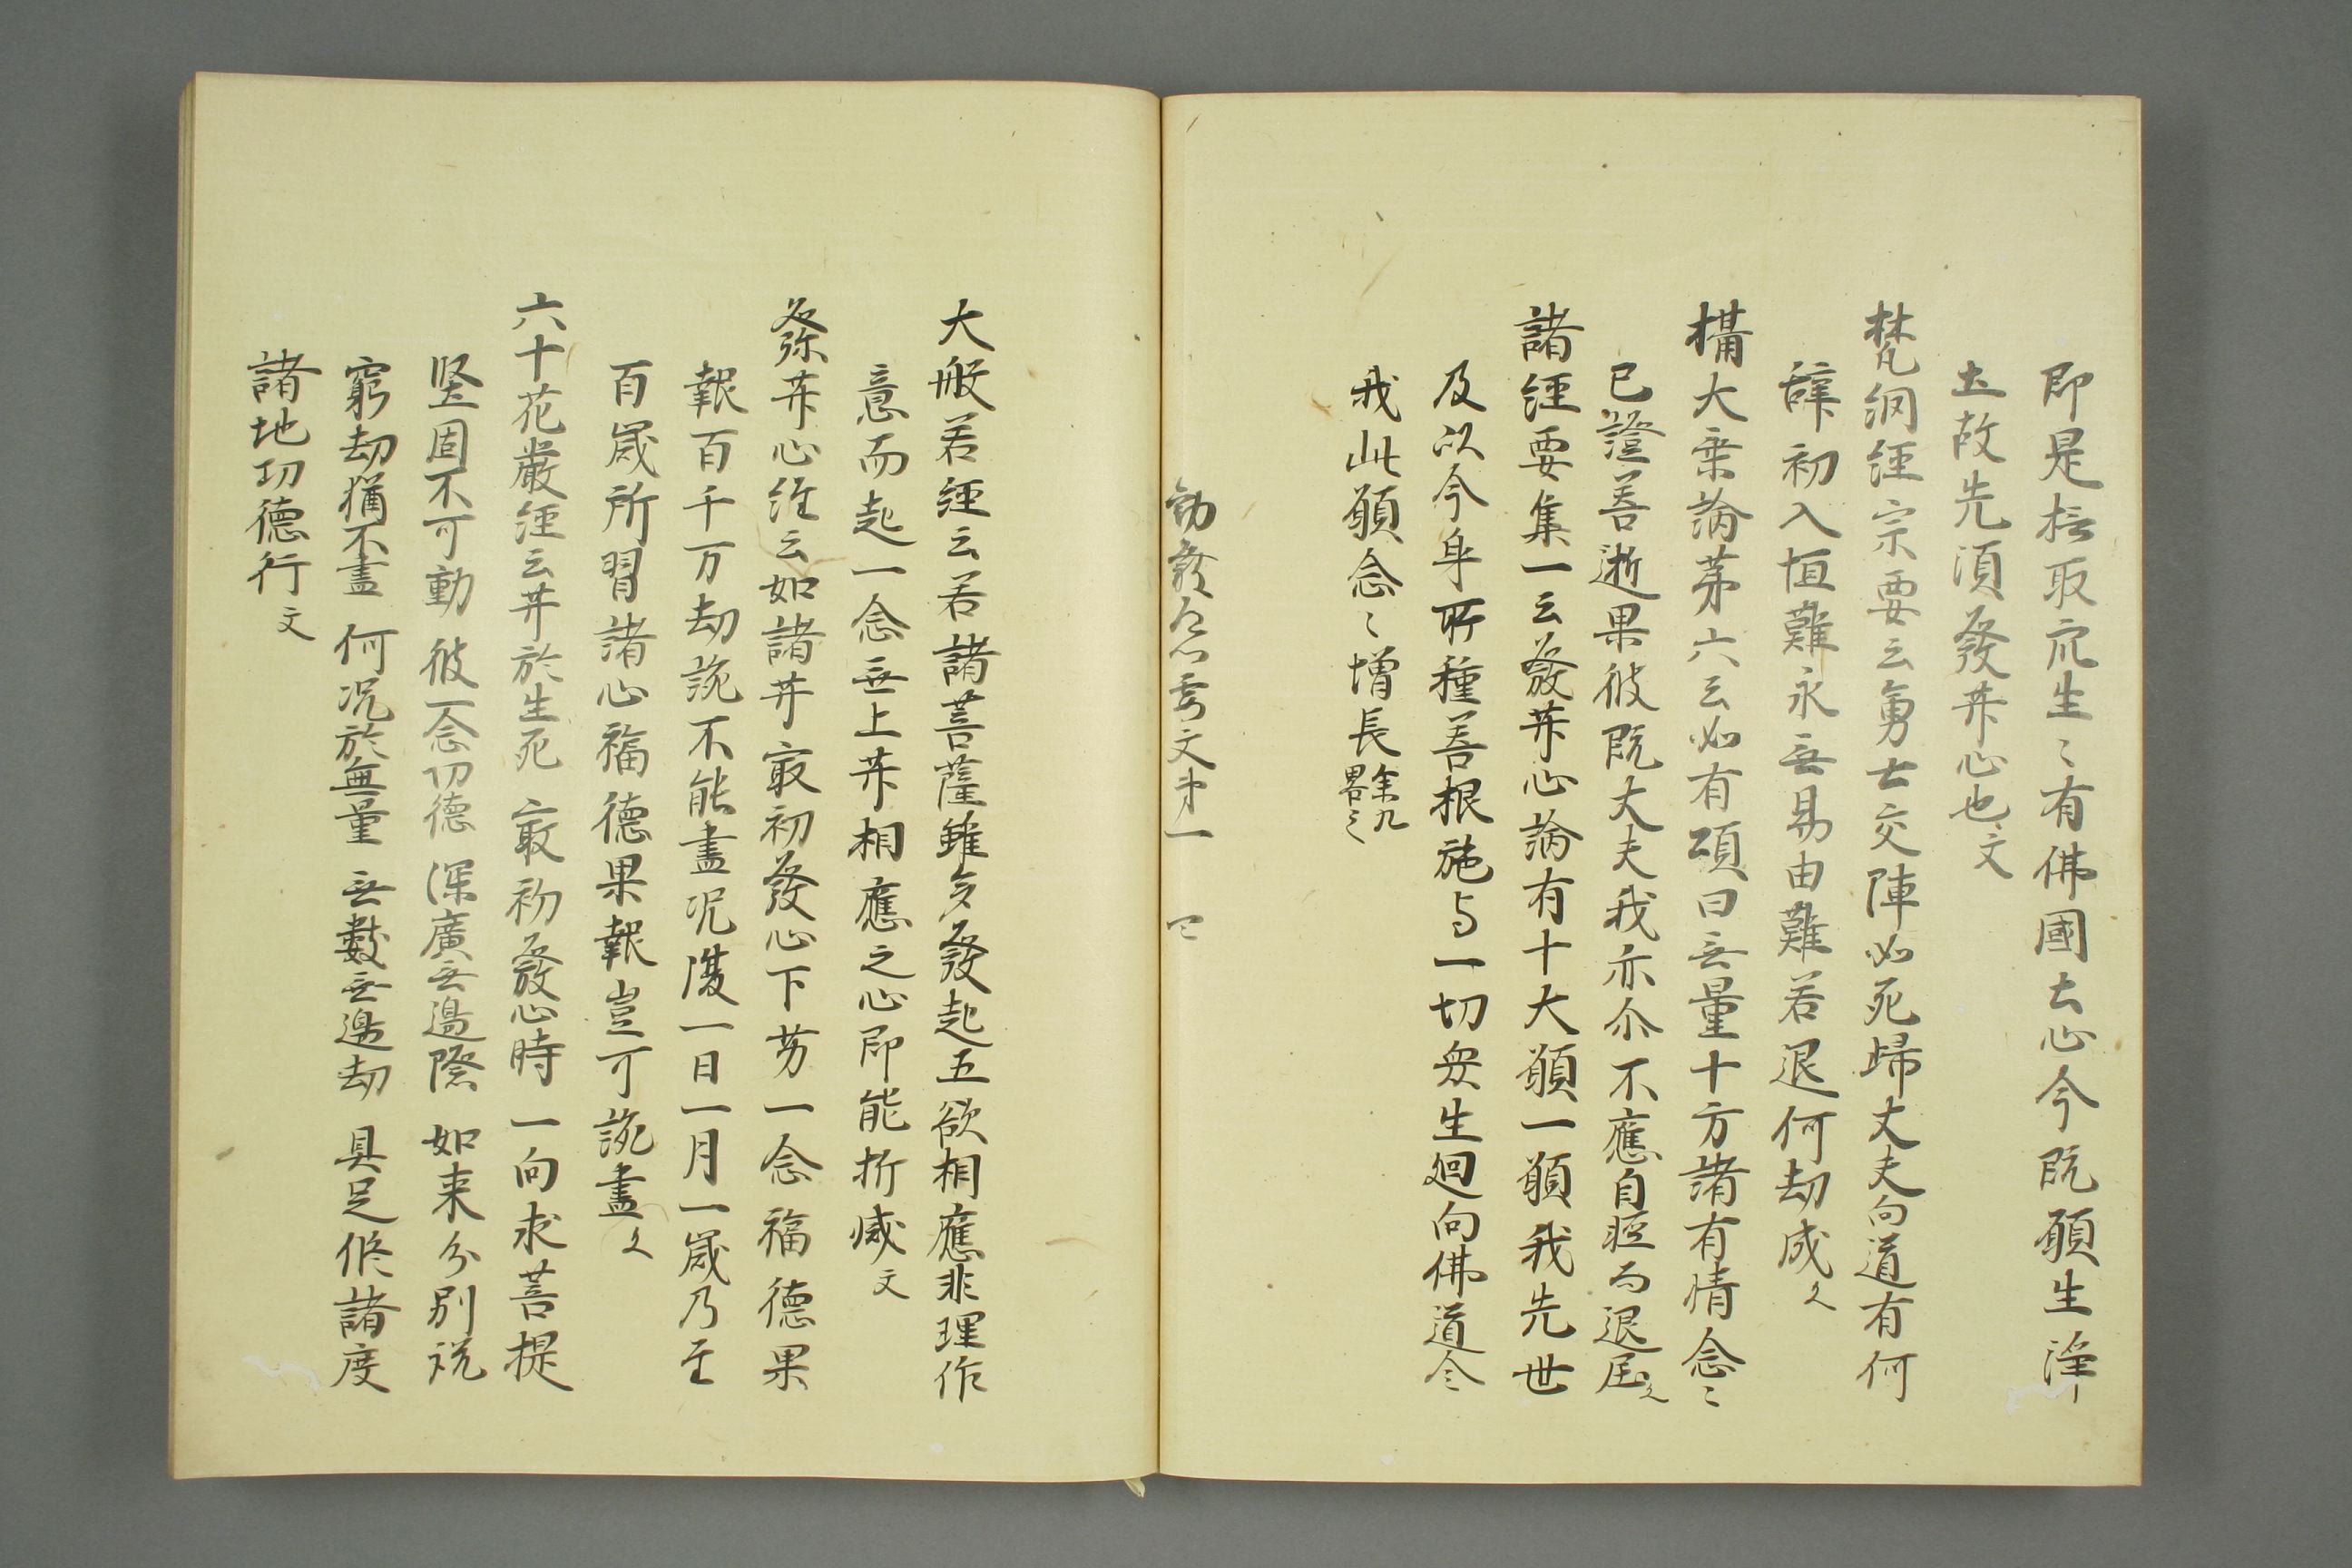 即是摂取众生〻有佛國土心今既願生淨
土故先須發𦬇心也文
梵網経宗要云勇士交陣必死歸丈夫向道有何
辞初入恒難永无易由難若退何劫成文
攝大乗論第六云如有頌曰无量十方諸有情念〻
已證善逝果彼既丈夫我亦尒不應自軽而退屈文
諸経要集一云發𦬇心論有十大願一願我先世
及以今身所種善根施与一切衆生廻向佛道令
我此願念〻増長余九
畧之
勧發 要文第一 三
大般若経云若諸菩薩雖多發起五欲相應非理作
意而起一念无上𦬇相應之心即能折滅文
發𦬇心経云如諸𦬇冣初發心下劣一念福德果
報百千万劫説不能盡況復一日一月一歳乃至
百歳所習諸心福德果報豈可説盡文
六十花嚴経云𦬇於生死 冣初發心時 一向求菩提
堅固不可動 彼一念切德 深廣无邊際 如来分別説
窮劫猶不盡 何況於無量 无數无邊劫 具足修諸度
諸地功德行文